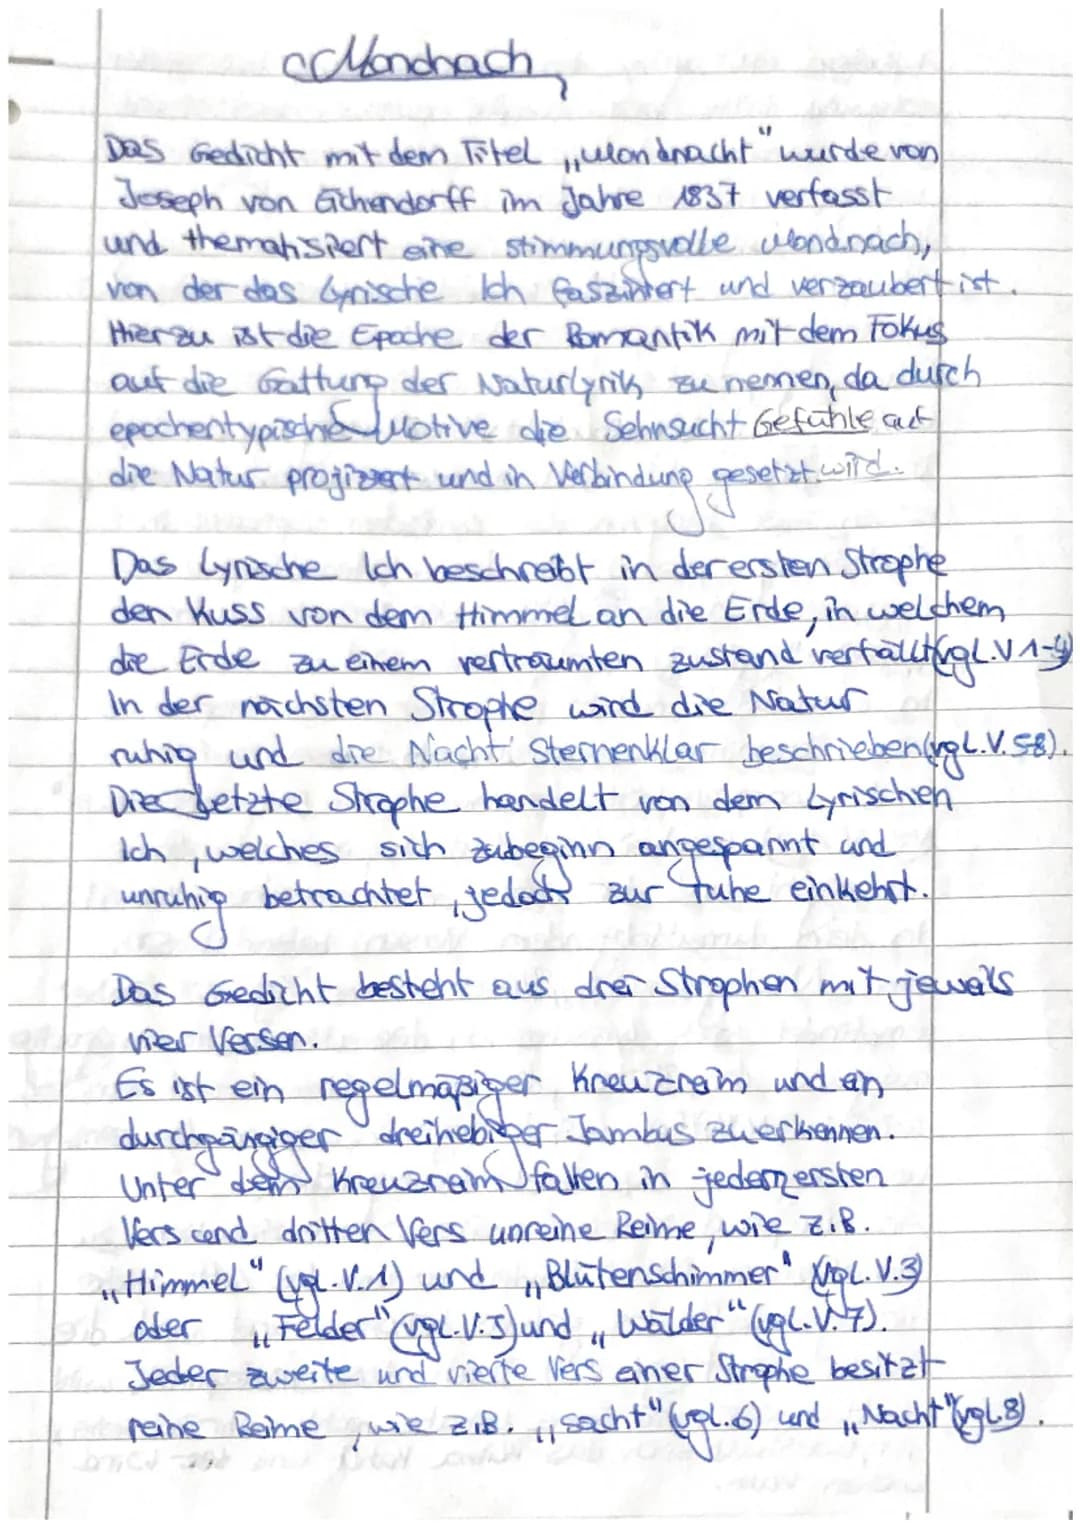 Mondnach
Das Gedicht mit dem Titel „Mondnacht" wurde von
Joseph von Eichendorff im Jahre 1837 verfasst
und thematisiert eine stimmungsvolle Mondnach,
von der das Lyrische Ich fasziniert und verzaubert ist.
Hierzu ist die Epoche der Romantik mit dem Fokus
auf die Gattung der Naturlyrik zu nennen, da durch
epochentypische Motive die Sehnsucht Gefühle auf
die Natur projiziert und in Verbindung gesetzt wird.
Das Lyrische Ich beschreibt in der ersten Strophe
den Kuss von dem Himmel an die Erde, in welchem
die Erde zu einem verträumten zustand verfällt (vgl. V 1-4)
In der nächsten Strophe wird die Natur
ruhig und die Nacht Sternenklar beschrieben (vgl. V. 58).
Die Letzte Strophe handelt von dem Lyrischen
Ich, welches sich zubeginn angespannt und
unruhig betrachtet, jedoch zur ruhe einkehrt.
Das Gedicht besteht aus drei Strophen mit jeweils
vier Versen.
Es ist ein regelmäßiger Kreuzreim und ein
durchgängiger dreihebiger Jambus zu erkennen.
Unter dem Kreuzreim fallen in jedem ersten
Vers und dritten Vers unreine Reime, wie z.B.
„Himmel" (vgl. V. 1) und „Blütenschimmer" (vgl. V. 3)
oder „Felder" (vgl. V. 5) und „Wälder" (vgl. V. 7).
Jeder zweite und vierte Vers einer Strophe besitzt
reine Reime, wie z.B. „sacht" (vgl. 6) und „Nacht" (vgl. 8).